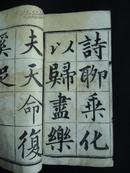 詩聊乘化
以歸盡樂
夫天命復